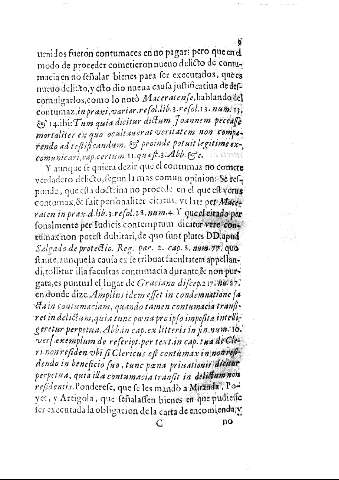 9
uenidos fueron contumaces en no pagar: pero que en el
modo de proceder cometieron nueuo delicto de contu-
macia en no señalar bienes para ser executados, que es
nueuo delicto, y esto dio nueua causa justificatiua de des-
comulgarlos, como lo notò Maceratense, hablando del
contumaz, in praxi, variar. resol. lib. 3. resol. 13. num. 13.
& 14. ibi: Tum quia dicitur dictum Joannem peccasse
mortaliter ex quo occultauerat veritatem non compa-
rendo ad testificandum, & proinde potuit legitime ex-
comunicari, cap. certum 11. quæst. 3. Abb. &c.
Y aunque se quiera dezir que el contumaz no comete
verdadero delicto, segun la mas comun opinion: Se res-
ponde, que esta doctrina no procede en el que est verus
contumax, & fuit personaliter citatus, vt late per Mace-
raten in prax. d. lib. 3. resol. 13. num. 4. Y que el citado per
sonalmente per Iudicis contemptum dicitur vere con-
tumax non potest dubitari, de quo sunt plures DD. apud
Salgado de protectio. Reg. par. 2. cap. 8. num. 77. quo
tante, aunque la causa ex se tribuat facultatem appellan-
di, tollitur illa facultas contumacia durante, & non pur-
gata, es puntual el lugar de Graciano discep. 17. nu. 27.
en donde dize: Amplius idem esset in condemnatione fa
cta in contumaciam, quando tamen contumacia transi-
ret in delictum, quia tunc pœna pro ipso imposita intelli-
geretur perpetua. Abb. in cap. ex litteris in fin. num. 10.
vers. exemplum de rescript. per text. in cap. tua de Cle-
ri non residen. vbi si Clericus est contumax in non resi-
dendo in beneficio suo, tunc pœna priuationis dicitur
perpetua, quia illa contumacia transit in delictum non
residentis. Ponderese, que se les mandò a Miranda, Po-
yet, y Artigola, que señalassen bienes en que pudiesse
ser executada la obligacion de la carta de encomienda, y
C no